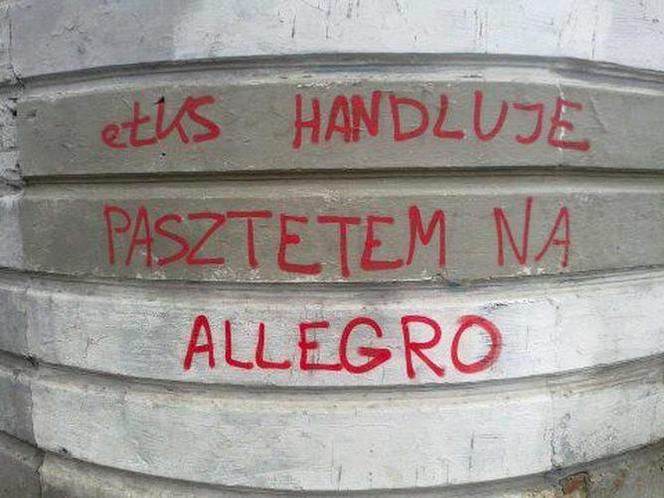 ełKS HANDLUJE
PASZTETEM NA
ALLEGRO